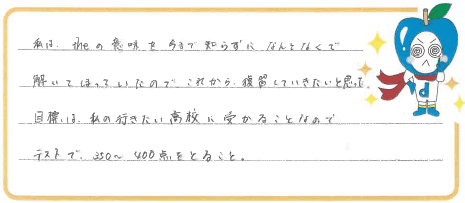 私は、theの意味を今まで知らずに なんとなくで
解いてしまっていたので、これから、復習していきたいと思った。
目標は、私の行きたい高校に受かることなので
テストで、350〜400点をとること。
d